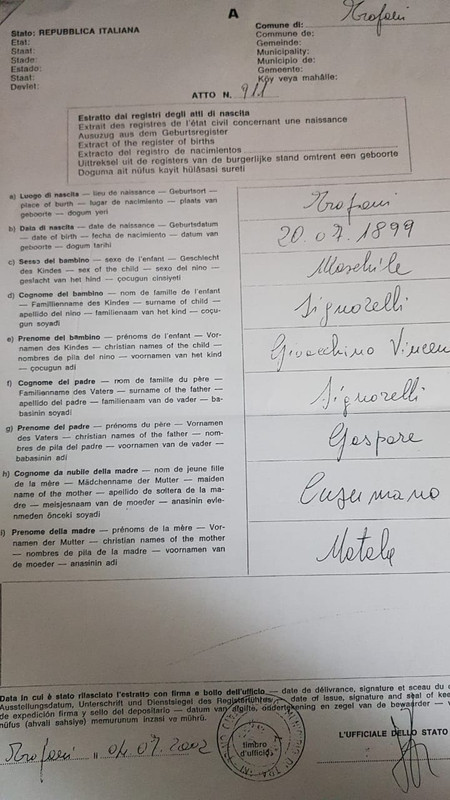 A
Stato: REPUBBLICA ITALIANA
Etat:
Staat:
Stade:
Estado:
Staat:
Devlet:
Comune di: Trapani
Commune de:
Gemeinde:
Municipality:
Municipio de:
Gemeente:
Köy veya mahâlle:
ATTO N. 911
Estratto dai registri degli atti di nascita
Extrait des registres de l'état civil concernant une naissance
Auszug aus dem Geburtsregister
Extract of the register of births
Extracto del registro de nacimientos
Uittreksel uit de registers van de burgerlijke stand omtrent een geboorte
Doguma ait nüfus kayit hülâsasi sureti
a) Luogo di nascita — lieu de naissance — Geburtsort —
place of burth — lugar de nacimiento — plaats van
geboorte — dogum yeri
Trapani
b) Data di nascita — date de naissance — Geburtsdatum
— date of birth — fecha de nacimiento — datum van
geboorte — dogum tarihi
20.07.1899
c) Sesso del bambino — sexe de l'enfant — Geschlecht
des Kindes — sex of the child — sexo del nino —
geslacht van het kind — çocugun cinsiyeti
Maschile
d) Cognome del bambino — nom de famille de l'enfant
— Famillienname des Kindes — surname of child —
apellido del nino — familienaam van het kind — çocu-
gun soyadi
Signorelli
e) Prenome del bambino — prénoms de l'enfant — Vor-
namen des Kindes — christian names of the child —
nombres de pila del nino — voornamen van het kind
— çocugun adi
Gioacchino
f) Cognome del padre — nom de famille du père —
Familienname des Vaters — surname of the father —
apellido del padre — familienaam van de vader — ba-
basinin soyadi
Signorelli
g) Prenome del padre — prénoms du père — Vornamen
des Vaters — christian names of the father — nom-
bres de pila del padre — voornamen van de vader —
babasinin adi
Gaspare
h) Cognome da nubile della madre — nom de jeune fille
de la mère — Mädchenname der Mutter — maiden
name of the mother — apellido de soltera de la ma-
dre — meisjesnaam van de moeder — anasinin evle-
nmeden önceki soyadi
Cusumano
i) Prenome della madre — prénoms de la mère — Vor-
namen der Mutter — christian names of the mother
— nombres de pila de la madre — voornamen van
de moeder — anasinin adi
Natala
Data in cui è stato rilasciato l'estratto con firma e bollo dell'ufficio — date de délivrance, signature et sceau du
Ausstellungsdatum, Unterschrift und Dienstsiegel des Registerfuhres — date of issue, signature and seal of
de expedición firma y sello del depositario — datum van afgifte, ondertekening en zegel van de bewaarder —
nüfus (ahvali sahsiye) memurunum inzasi ve mührü.
Trapani, li 04.07.2002
timbro
d'ufficio
L'UFFICIALE DELLO STATO